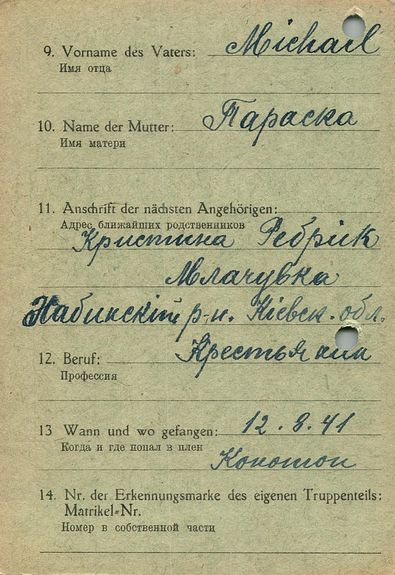 9. Vorname des Vaters: Michail
Имя отца
10. Name der Mutter: Параска
Имя матери
11. Anschrift der nächsten Angehörigen:
Адрес ближайших родственников
Кристина Ребрик
Млачувка
Кабинскій р-н. Кіевск. обл.
12. Beruf: Крестьянин
Профессия
13 Wann und wo gefangen: 12.8.41
Когда и где попал в плен
Конотоп
14. Nr. der Erkennungsmarke des eigenen Truppenteils:
Matrikel=Nr.
Номер в собственной части